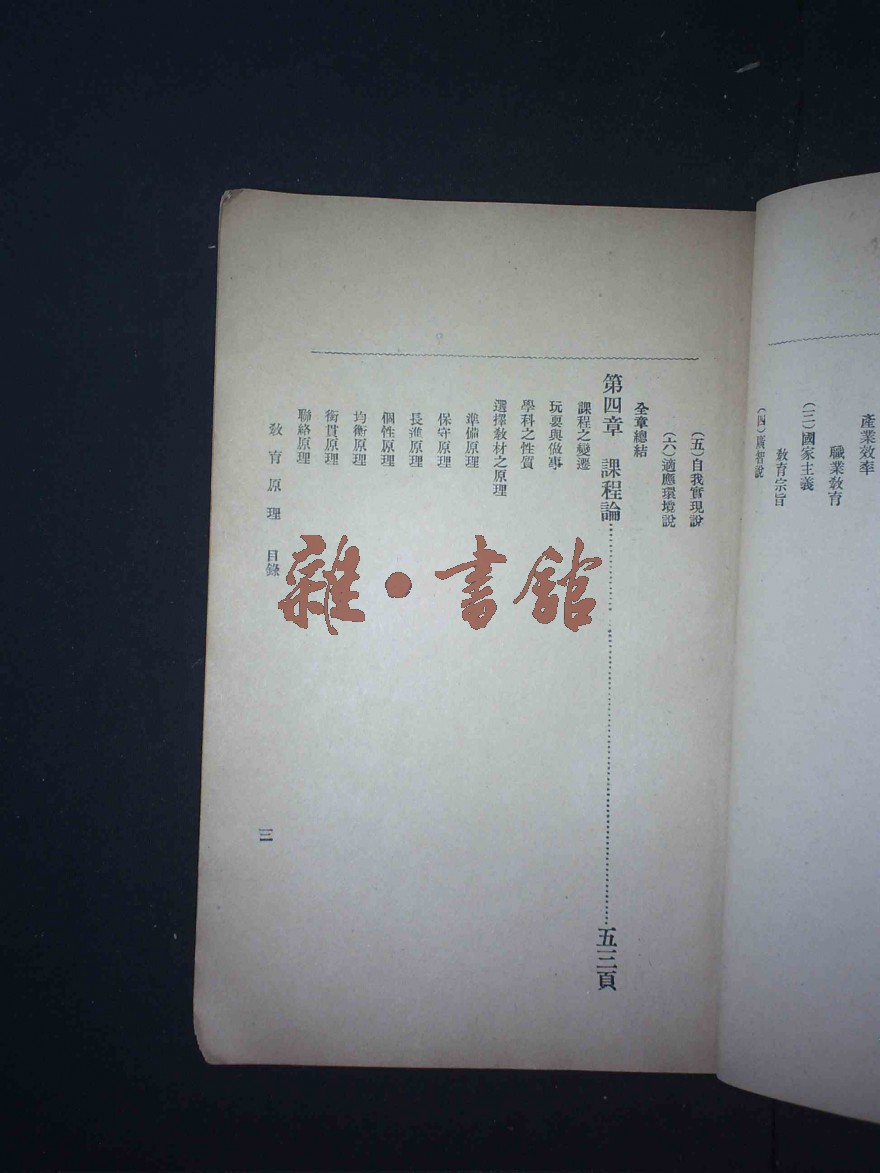 產業效率
職業教育
(三)國家主義
教育宗旨
(五)自我實現說
(六)適應環境說
全章總結
第四章 課程論……五三頁
課程之變遷
玩耍與做事
學科之性質
選擇教材之原理
準備原理
保守原理
長進原理
個性原理
均衡原理
銜貫原理
聯絡原理
教育原理 目錄 三
雜·書館